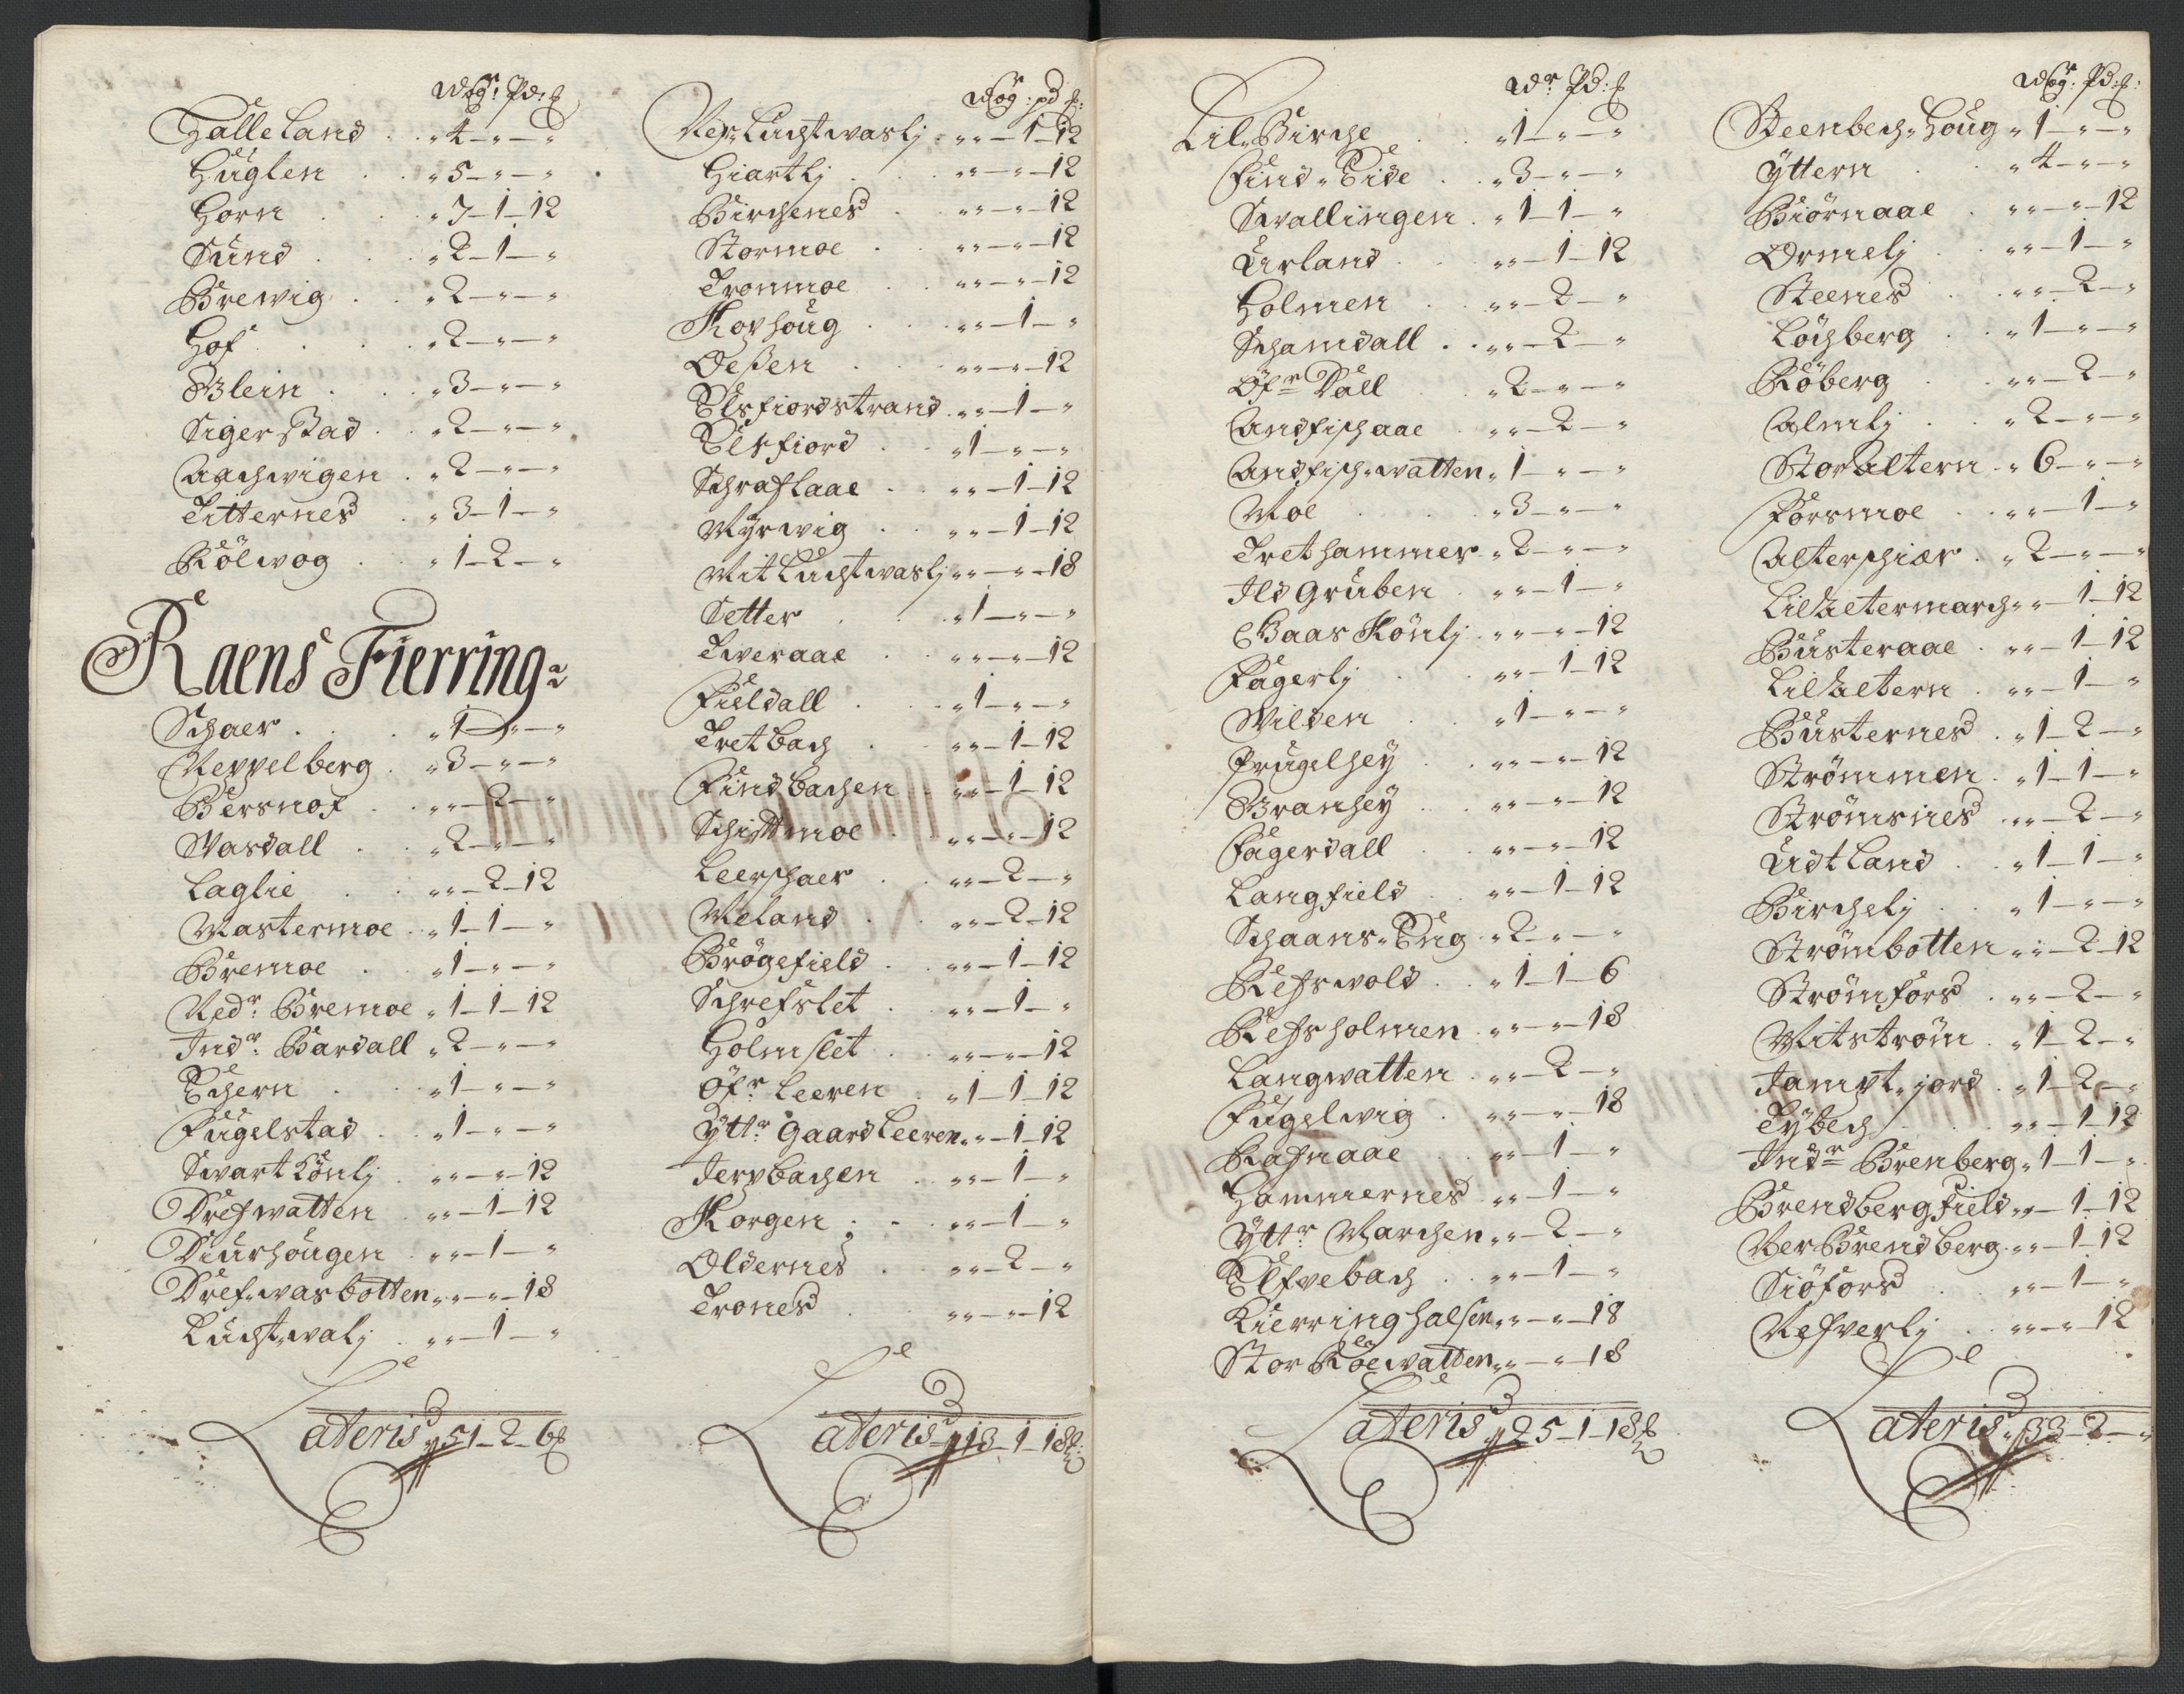 Wog: Pd: ℔
Halleland . . „ 4 – „ – „
Huglen . . „ 5 – „ – „
Horn . . „ 7 – 1 – 12
Sund . . „ 2 – 1 – „
Brewig . . „ 2 – „ – „
Hof . . „ 2 – „ – „
Blein . . „ 3 – „ – „
Sigerstad . „ 2 – „ – „
Aachwigen . „ 2 – „ – „
Titternes . „ 3 – 1 – „
Kölwog . „ 1 – 2 – „
Raens Fierring
Schaer . . „ 1 – „ – „
Neppelberg . „ 3 – „ – „
Bersnof . „ „ – 2 – „
Wasdall . „ 2 – „ – „
Laglie . „ „ – 2 – 12
Mastermoe . „ 1 – 1 – „
Bremoe . „ 1 – „ – „
Nedr. Bremoe „ 1 – 1 – 12
Indr. Bardall „ 2 – „ – „
Echern . „ 1 – „ – „
Fugelstad . „ 1 – „ – „
Swart Kønlj „ „ – „ – 12
Drefwatten . „ „ – 1 – 12
Diurhougen . „ „ – 1 – „
Drefwasbotten „ „ – „ – 18
Luchtwalj . „ „ – 1 – „
Lateris 51 – 2 – 6 ℔
Wog: pd ℔:
Ner Luchtwaslj „ „ – 1 – 12
Hiartlj . „ „ – „ – 12
Birchenes . „ „ – „ – 12
Stormoe . „ „ – „ – 12
Tronmoe . „ „ – „ – 12
Kophoug . „ „ – 1 – „
Oeßen . „ „ – „ – 12
Elsfiordstrand . „ „ – 1 – „
Elsfiord . „ 1 – „ – „
Schraflaae . „ „ – 1 – 12
Myrwig . „ „ – 1 – 12
Mit Luchtwaslj „ „ – „ – 18
Setter . „ 1 – „ – „
Tweraae . „ „ – „ – 12
Fieldall . „ 1 – „ – „
Tretbach . „ „ – 1 – 12
Findbachen . „ „ – 1 – 12
Schittmoe . „ „ – „ – 12
Leerschaer . „ „ – 2 – „
Meland . „ „ – 2 – 12
Brögefield . „ „ – 1 – 12
Schrefslet . „ „ – 1 – „
Holmslet . „ „ – „ – 12
Öfr. Leeren . „ 1 – 1 – 12
Yttr. Gaard Leeren „ „ – 1 – 12
Jerpbachen . „ „ – 1 – „
Korgen . „ „ – 1 – „
Oldernes . „ „ – 2 – „
Trones . „ „ – „ – 12
Lateris 13 – 1 – 18 ℔
Wr. Pd: ℔
Lil Birche . „ 1 – „ – „
Find Eide . „ 3 – „ – „
Swallingen . „ 1 – 1 – „
Urland . „ „ – 1 – 12
Holmen . „ „ – 2 – „
Schamdall . „ „ – 2 – „
Öfr Dall . „ 2 – „ – „
Andfischaae . „ „ – 2 – „
Andfischwatten „ 1 – „ – „
Moe . „ 3 – „ – „
Trethammer . „ 2 – „ – „
Ild Gruben . „ „ – 1 – „
Baas Kønlj . „ „ – „ – 12
Fagerlj . „ „ – 1 – 12
Wilden . „ 1 – „ – „
Prugelhey . „ „ – „ – 12
Granhey . „ „ – „ – 12
Fagerdall . „ „ – „ – 12
Langfield . „ „ – 1 – 12
Schaans Eng . „ 2 – „ – „
Refswold . „ 1 – 1 – 6
Refsholmen . „ „ – „ – 18
Langwatten . „ „ – 2 – „
Fugelwig . „ „ – „ – 18
Rafnaae . „ „ – 1 – „
Hammernes . „ „ – 1 – „
Yttr Marchen „ „ – 2 – „
Elfvebach . „ „ – 1 – „
Kierringhalsen „ „ – „ – 18
Stor Röewatten „ „ – „ – 18
Lateris 25 – 1 – 18 ℔
Wog: Pd: ℔:
Steenbech Houg „ 1 – „ – „
Yttern . „ 4 – „ – „
Biörnaae . „ „ – „ – 12
Ormelj . „ „ – 1 – „
Steenes . „ „ – 2 – „
Löchberg . „ 1 – „ – „
Röberg . „ „ – 2 – „
Almlj . „ 2 – „ – „
Stor Altern . „ 6 – „ – „
Forsmoe . „ „ – 1 – „
Alterschiær . „ 2 – „ – „
Lil Altermarch „ „ – 1 – 12
Busteraae . „ „ – 1 – 12
Lil Altern . „ „ – 1 – „
Busternes . „ 1 – 2 – „
Strömmen . „ 1 – 1 – „
Strömsnes . „ „ – 2 – „
Udtland . „ 1 – 1 – „
Birchelj . „ 1 – „ – „
Strömbotten „ „ – 2 – 12
Strömfors . „ „ – 2 – „
Mitström . „ 1 – 2 – „
Jampt jord . „ 1 – 2 – „
Tybech . „ „ – 1 – 12
Indr Brenberg „ 1 – 1 – „
Brendbergfield „ „ – 1 – 12
Ner Brendberg „ „ – 1 – 12
Siöfors . „ „ – 1 – „
Nefverlj . „ „ – „ – 12
Lateris 33 – 2 – „